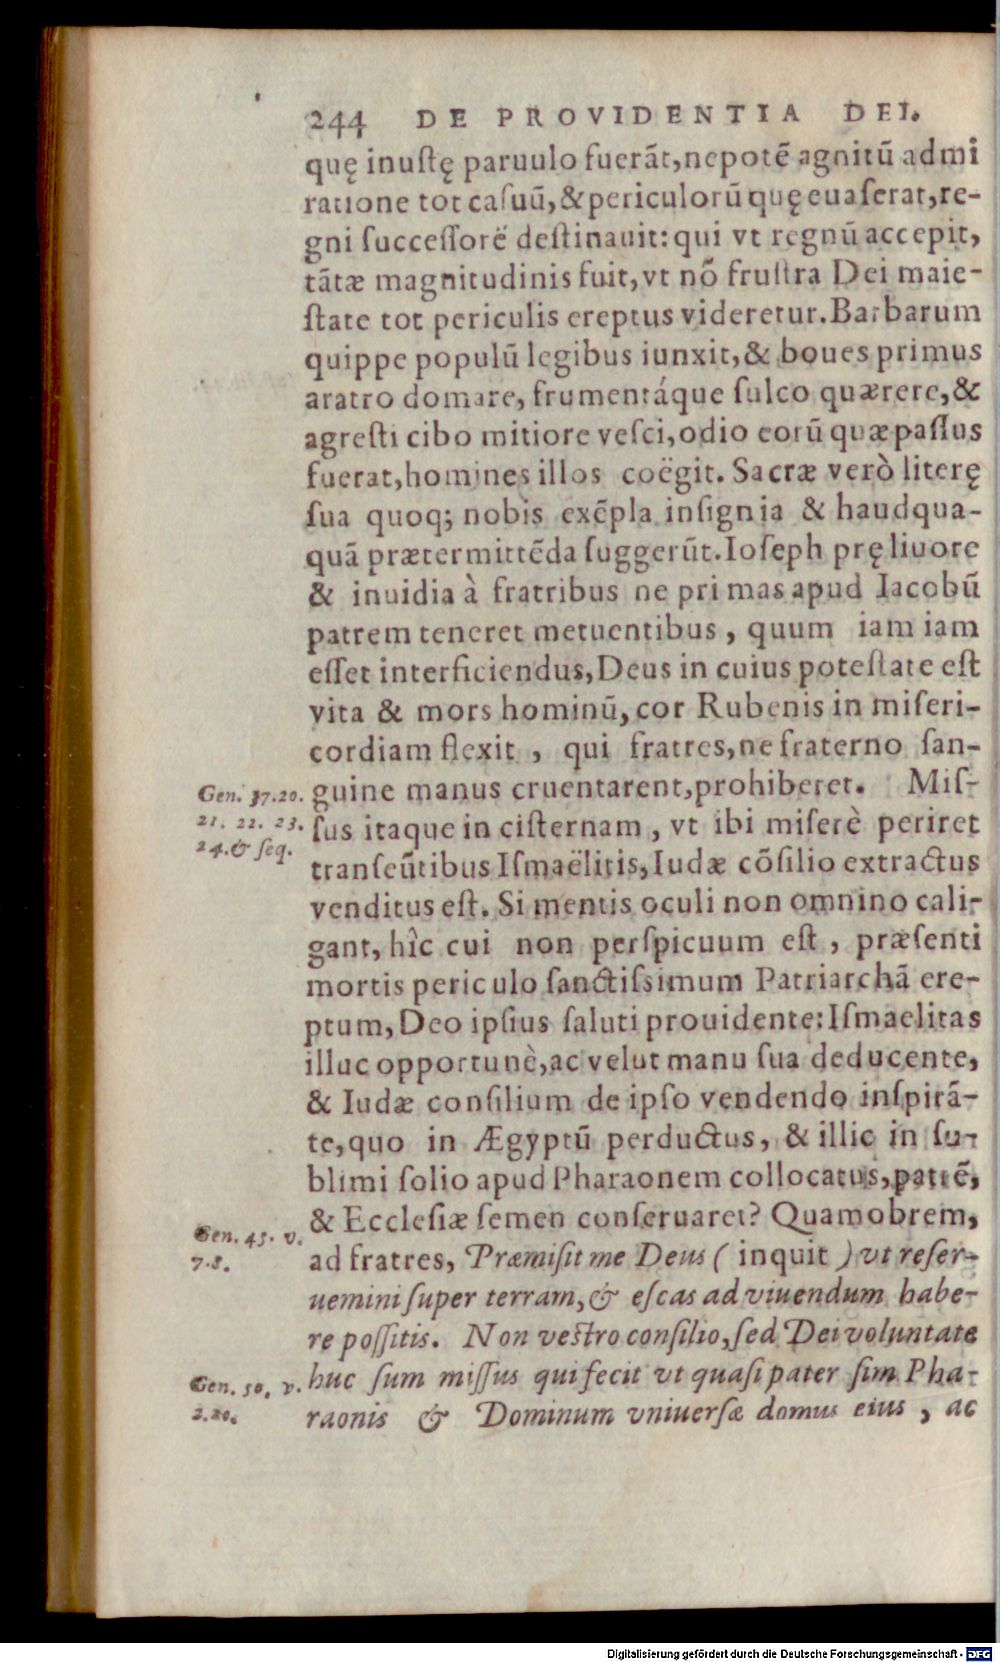 244 DE PROVIDENTIA DEI.
quę inustę paruulo fuerāt, nepotē agnitū admi
ratione tot casuū, & periculorū quę euaserat, re-
gni successorē destinauit: qui vt regnū accepit,
tātæ magnitudinis fuit, vt nō frustra Dei maie-
state tot periculis ereptus videretur. Barbarum
quippe populū legibus iunxit, & boues primus
aratro domare, frumentáque sulco quærere, &
agresti cibo mitiore vesci, odio eorū quæ passus
fuerat, homines illos coëgit. Sacræ verò literę
sua quoq; nobis exēpla insignia & haudqua-
quā prætermittēda suggerūt. Ioseph prę liuore
& inuidia à fratribus ne primas apud Iacobū
patrem teneret metuentibus, quum iam iam
esset interficiendus, Deus in cuius potestate est
vita & mors hominū, cor Rubenis in miseri-
cordiam flexit, qui fratres, ne fraterno san-
Gen. 37.20. guine manus cruentarent, prohiberet. Mis-
21. 22. 23. sus itaque in cisternam, vt ibi miserè periret
24. & seq. transeūtibus Ismaëlitis, Iudæ cōsilio extractus
venditus est. Si mentis oculi non omnino cali-
gant, hîc cui non perspicuum est, præsenti
mortis periculo sanctissimum Patriarchā ere-
ptum, Deo ipsius saluti prouidente: Ismaelitas
illuc opportunè, ac velut manu sua deducente,
& Iudæ consilium de ipso vendendo inspirā-
te, quo in Ægyptū perductus, & illic in su-
blimi solio apud Pharaonem collocatus, patrē,
& Ecclesiæ semen conseruaret? Quamobrem,
Gen. 45. v. 7.8. ad fratres, Præmisit me Deus (inquit) vt reser-
uemini super terram, & escas ad viuendum habe-
re possitis. Non vestro consilio, sed Dei voluntate
Gen. 50. v. huc sum missus qui fecit vt quasi pater sim Pha-
2.20. raonis & Dominum vniuersæ domus eius, ac
Digitalisierung gefördert durch die Deutsche Forschungsgemeinschaft - DFG